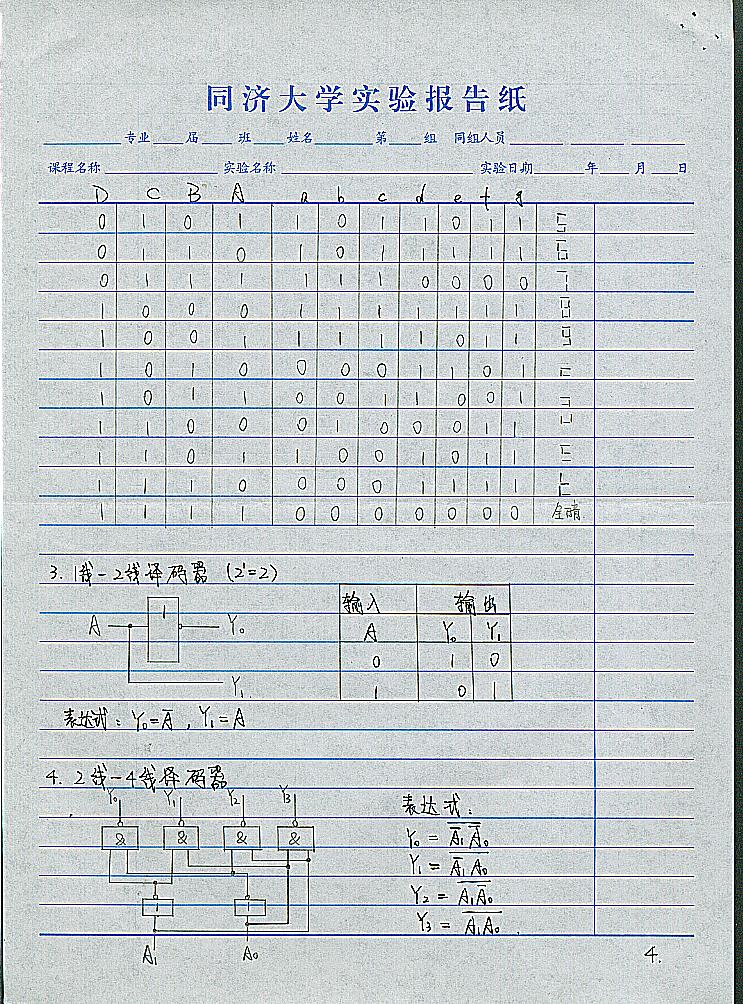 同济大学实验报告纸
专业 届 班 姓名 第 组 同组人员
课程名称 实验名称 实验日期 年 月 日
D C B A a b c d e f g
0 1 0 1 1 0 1 1 0 1 1 5
0 1 1 0 1 0 1 1 1 1 1 6
0 1 1 1 1 1 1 0 0 0 0 7
1 0 0 0 1 1 1 1 1 1 1 8
1 0 0 1 1 1 1 1 0 1 1 9
1 0 1 0 0 0 0 1 1 0 1
1 0 1 1 0 0 1 1 0 0 1
1 1 0 0 0 1 0 0 0 1 1
1 1 0 1 1 0 0 1 0 1 1
1 1 1 0 0 0 0 1 1 1 1
1 1 1 1 0 0 0 0 0 0 0 全暗
3. 1线-2线译码器 (2¹=2)
输入 输出
A Y₀ Y₁
0 1 0
1 0 1
A 1 Y₀
Y₁
表达式: Y₀=A̅, Y₁=A
4. 2线-4线译码器
Y₀ Y₁ Y₂ Y₃
& & & &
1 1
A₁ A₀
表达式:
Y₀ = \overline{\overline{A₁} \overline{A₀}}
Y₁ = \overline{\overline{A₁} A₀}
Y₂ = \overline{A₁ \overline{A₀}}
Y₃ = \overline{A₁ A₀}
4.